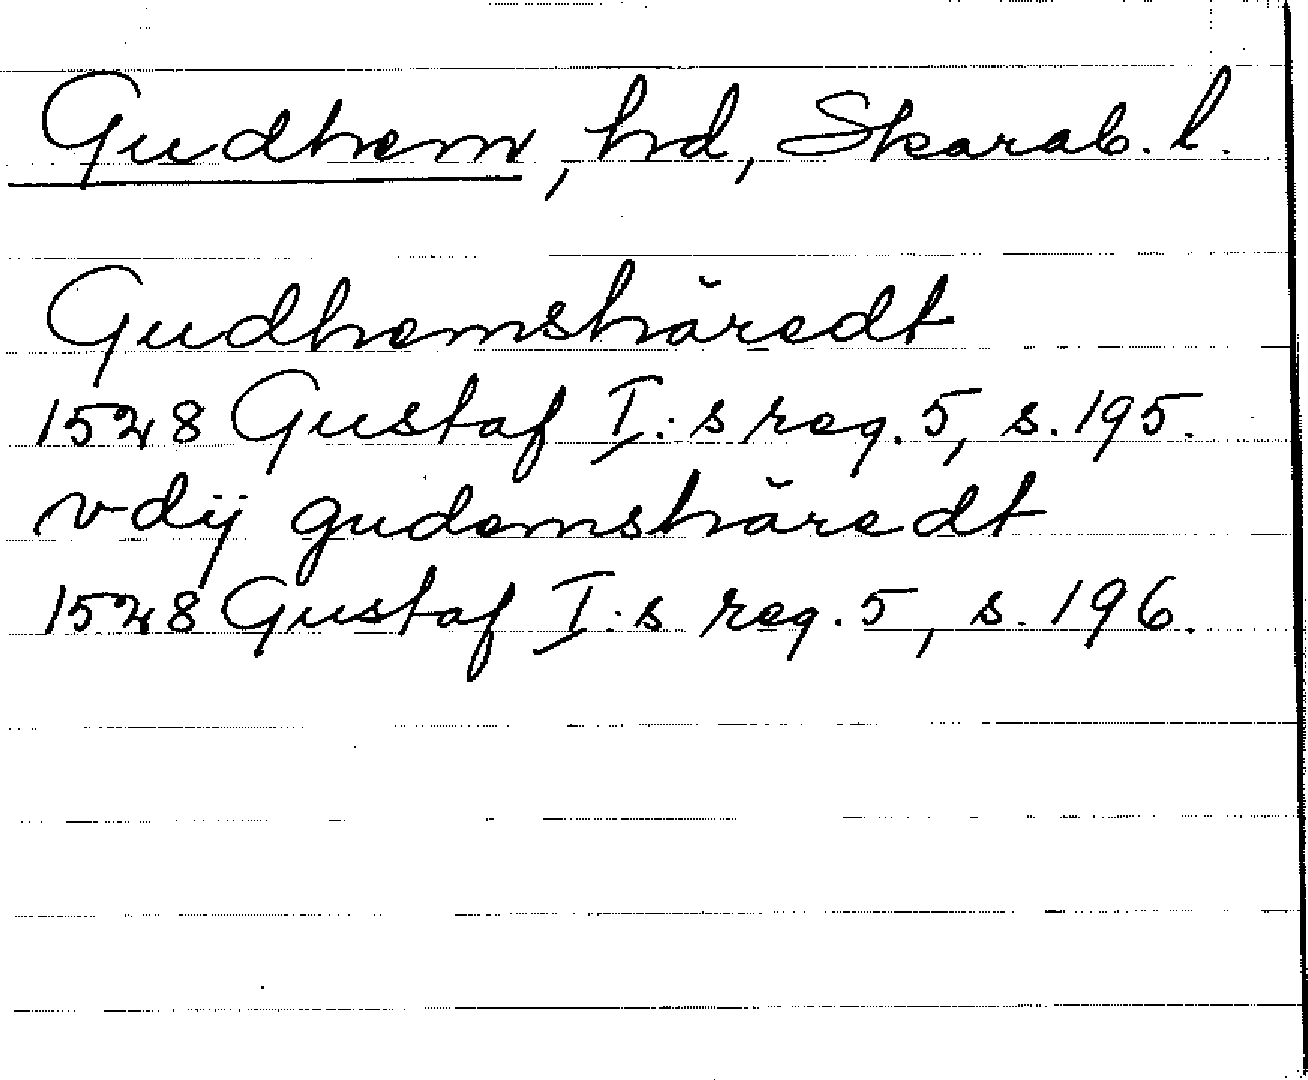 Gudhem, hd, Skarab. l.
Gudhemshäredt
1528 Gustaf I:s reg. 5, s. 195.
vdij gudemshäredt
1528 Gustaf I:s reg. 5, s. 196.